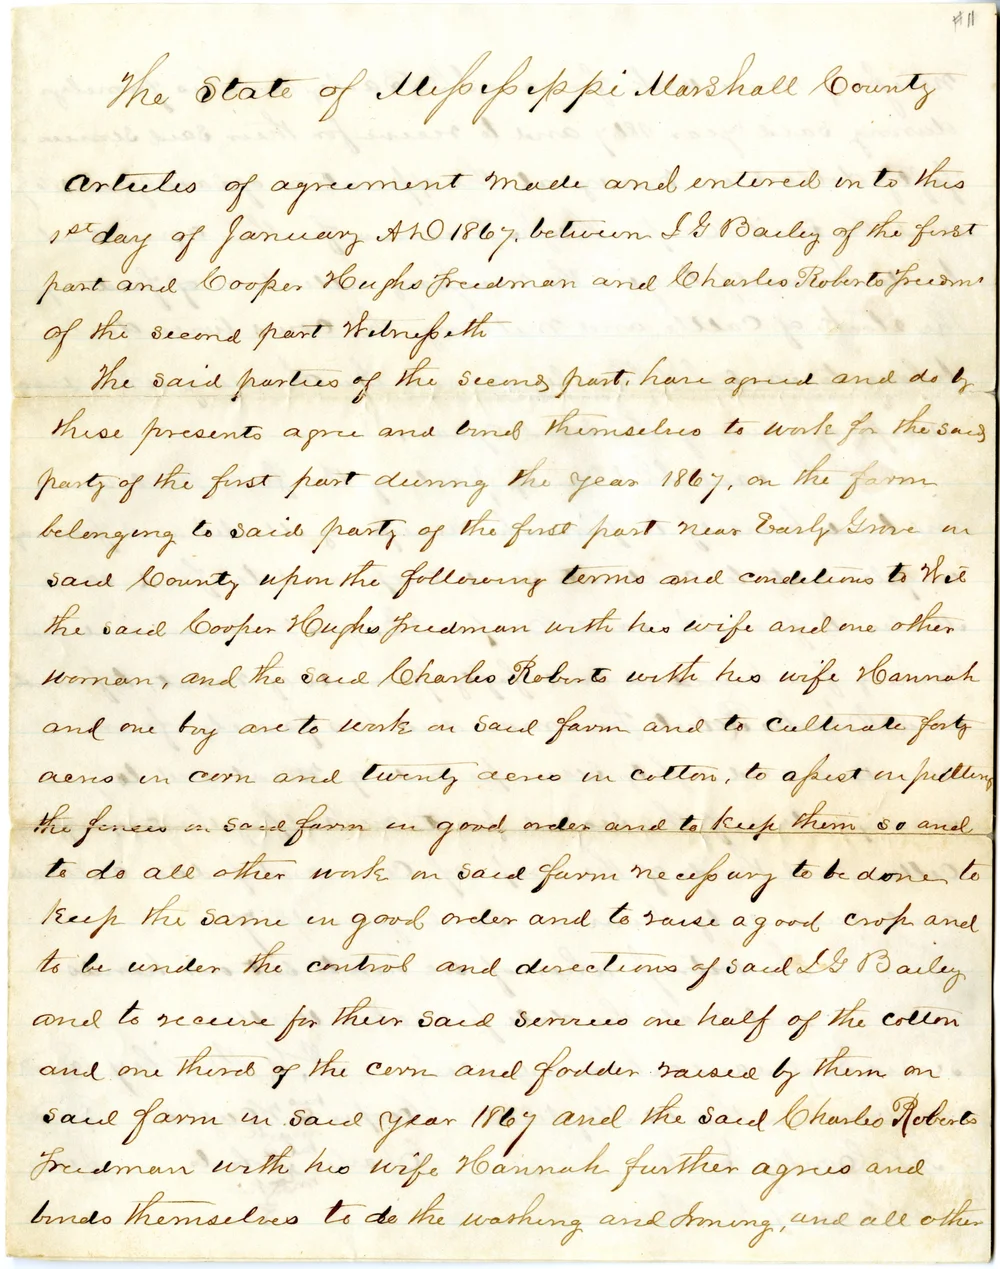 #11
The State of Mississippi Marshall County
Articles of agreement made and entered in to this
1st day of January AD 1867, between I G Bailey of the first
part and Cooper Hughs Freedman and Charles Roberts Freedmn
of the second part Witnesseth
The said parties of the second part, have agreed and do by
these presents agree and bind themselves to work for the said
party of the first part during the year 1867, on the farm
belonging to said party of the first part near Early Grove in
said County upon the following terms and conditions to Wit
the said Cooper Hughs Freedman with his wife and one other
woman, and the said Charles Roberts with his wife Hannah
and one boy are to work on said farm and to cultivate forty
acres in corn and twenty acres in cotton, to assist in putting
the fences on said farm in good order and to keep them so and
to do all other work on said farm necessary to be done to
keep the same in good order and to raise a good crop and
to be under the control and directions of said I G Bailey
and to receive for their said services one half of the cotton
and one third of the corn and fodder raised by them on
said farm in said year 1867 and the said Charles Roberts
Freedman with his wife Hannah further agrees and
binds themselves to do the washing and Ironing, and all other